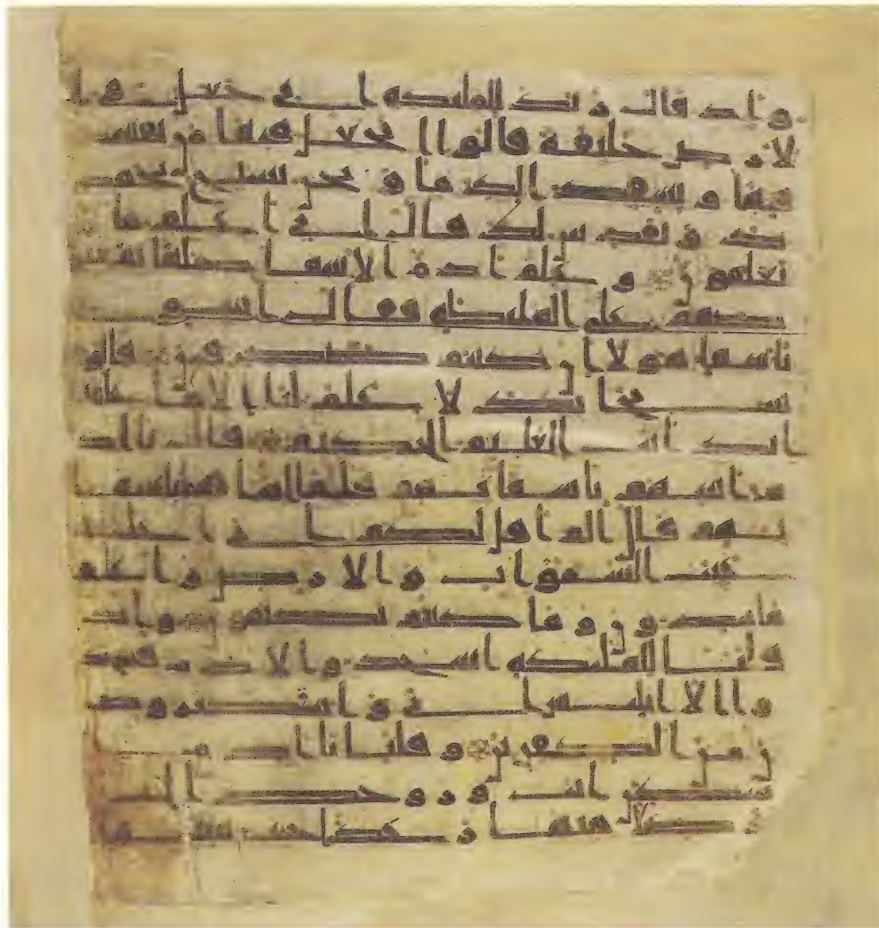 واد قال ربك للملىكه انى جعل فى ا
لارض خليفة قالوا اتجعل فيها من يفسد
فيها ويسفك الدما ونحن نسبح بحمد
ك ونقدس لك قال انى اعلم ما لا
تعلمون وعلم ادم الاسما كلها ثم عر
ضهم على الملىكه فقال انبىونى
باسما هولا ان كنتم صدقين قالو
ا سبحنك لا علم لنا الا ما علمتنا
انك انت العليم الحكيم قال يادم
انبىهم باسماىهم فلما انباهم باسما
ىهم قال الم اقل لكم انى اعلم
غيب السموات والارض واعلم
ما تبدون وما كنتم تكتمون واذ
قلنا للملىكه اسجدوا لادم فسجد
وا الا ابليس ابى واستكبر وكا
ن من الكفرين وقلنا يادم ا
سكن انت وزوجك الجنة
وكلا منها رغدا حيث شئتما